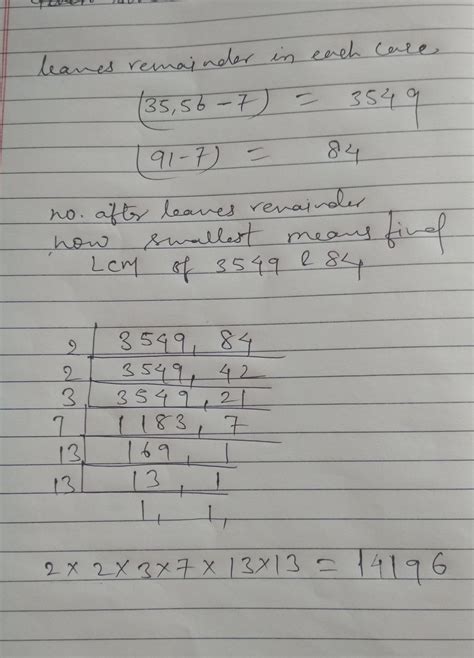 leaves remainder in each case.
(35,56-7) = 3549
(91-7) = 84
no. after leaves remainder
now smallest means find
LCM of 3549 & 84
2 | 3549, 84
2 | 3549, 42
3 | 3549, 21
7 | 1183, 7
13 | 169, 1
13 | 13, 1
1, 1,
2×2×3×7×13×13 = 14196